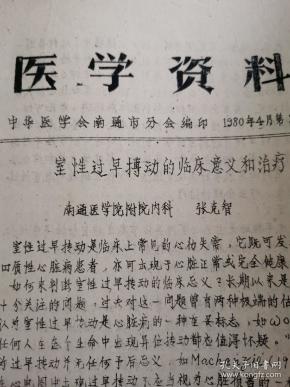 医学资料
中华医学会南通市分会编印 1980年4月第
室性过早搏动的临床意义和治疗
南通医学院附院内科 张克智
室性过早搏动是临床上常见的心律失常，它既可发
四质性心脏病患者，亦可出现于心脏正常或完全健康
如何来判断室性过早搏动的临床意义？长期以来是
十个关注的问题，过去对这一问题曾有两种极端的估
认为室性过早搏动是心脏病的一种主要标志，如Wo
任何人在生命中出现异位搏动都应值得怀疑。"
过早搏动并无任何予后意义，如Mackenzie